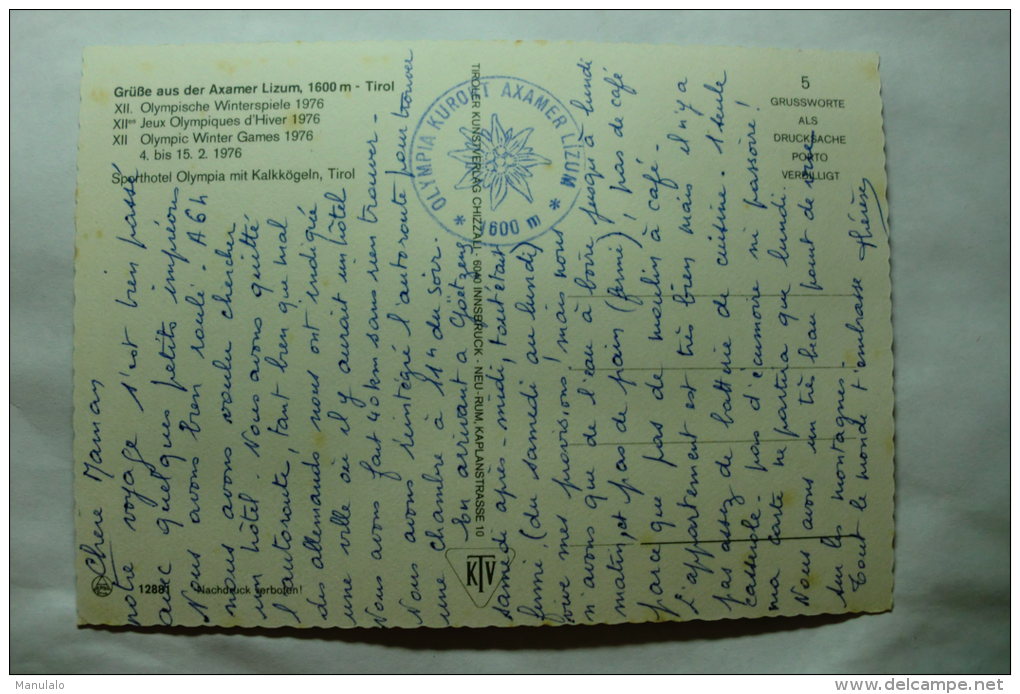 Grüße aus der Axamer Lizum, 1600 m - Tirol
XII. Olympische Winterspiele 1976
XIIes Jeux Olympiques d'Hiver 1976
XII Olympic Winter Games 1976
4. bis 15. 2. 1976
Sporthotel Olympia mit Kalkkögeln, Tirol
OLYMPIA KURORT AXAMER LIZUM
* 1600 m *
TIROLER KUNSTVERLAG CHIZZALI, 6040 INNSBRUCK - NEU-RUM, KAPLANSTRASSE 10
KTV
5
GRUSSWORTE
ALS
DRUCKSACHE
PORTO
VERBILLIGT
12881 Nachdruck verboten!
Chère Maman
notre voyage s'est bien passé
avec quelques petits imprévus
Nous avons bien roulé. A 6h
nous avons voulu chercher
un hôtel. Nous avons quitté
l'autoroute, tant bien que mal
des allemands nous ont indiqué
une ville où il y aurait un hôtel
Nous avons fait 40 km sans rien trouver -
Nous avons réintégré l'autoroute pour trouver
une chambre à 11h du soir.
En arrivant à Goëtzens
samedi après-midi, tout était
fermé, (du samedi au lundi)
vive mes provisions! mais nous
n'avons que de l'eau à boire jusqu'à lundi
matin, et pas de pain (fermé), pas de café
parce que pas de moulin à café -
L'appartement est très bien mais il n'y a
pas assez de batterie de cuisine. 1 seule
casserole - pas d'écumoire ni passoire!
ma carte ne partira que lundi.
Nous avons un très beau point de vue
sur les montagnes
Tout le monde t'embrasse Thérèse
Manulalo
www.delcampe.net